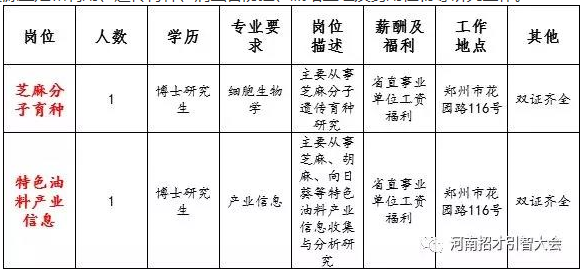 岗位 人数 学历 专业要求 岗位描述 薪酬及福利 工作地点 其他
芝麻分子育种 1 博士研究生 细胞生物学 主要从事芝麻分子遗传育种研究 省直事业单位工资福利 郑州市花园路116号 双证齐全
特色油料产业信息 1 博士研究生 产业信息 主要从事芝麻、胡麻、向日葵等特色油料产业信息收集与分析研究 省直事业单位工资福利 郑州市花园路116号 双证齐全
河南招才引智大会